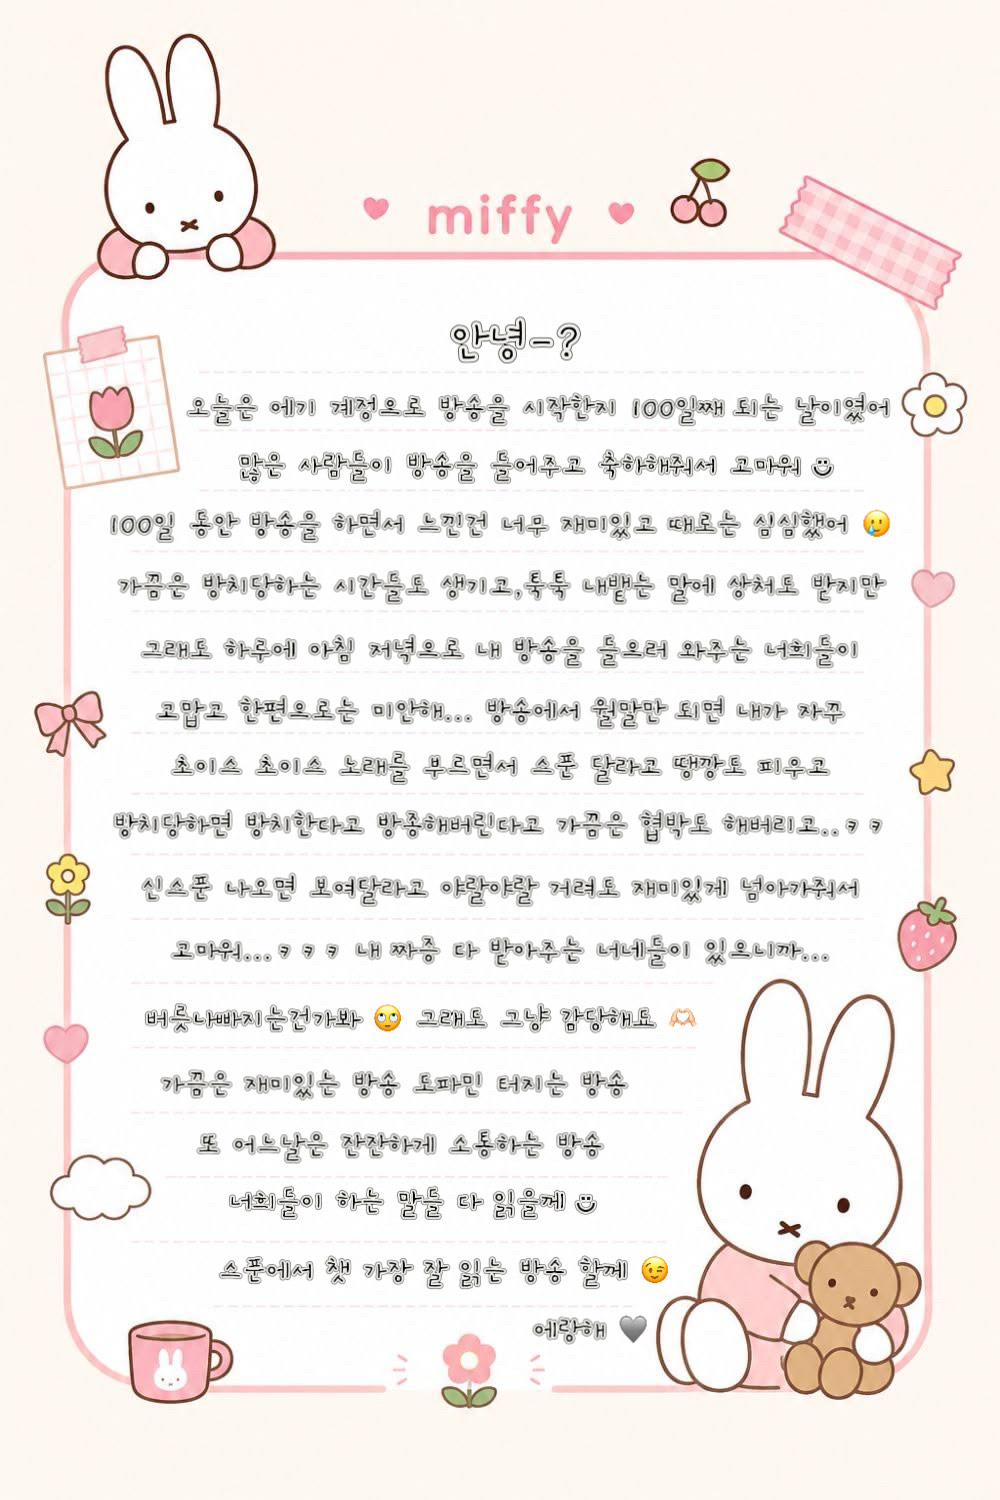 miffy
안녕-?
오늘은 에기 계정으로 방송을 시작한지 100일째 되는 날이였어
많은 사람들이 방송을 들어주고 축하해줘서 고마워
100일 동안 방송을 하면서 느낀건 너무 재미있고 때로는 심심했어 🥲
가끔은 방치당하는 시간들도 생기고,툭툭 내뱉는 말에 상처도 받지만
그래도 하루에 아침 저녁으로 내 방송을 들으러 와주는 너희들이
고맙고 한편으로는 미안해... 방송에서 월말만 되면 내가 자꾸
초이스 초이스 노래를 부르면서 스푼 달라고 땡깡도 피우고
방치당하면 방치한다고 방종해버린다고 가끔은 협박도 해버리고..ㅋㅋ
신스푼 나오면 보여달라고 야랄야랄 거려도 재미있게 넘아가줘서
고마워...ㅋㅋㅋ 내 짜증 다 받아주는 너네들이 있으니까...
버릇나빠지는건가봐 🙄 그래도 그냥 감당해요 🫶🏻
가끔은 재미있는 방송 도파민 터지는 방송
또 어느날은 잔잔하게 소통하는 방송
너희들이 하는 말들 다 읽을께
스푼에서 챗 가장 잘 읽는 방송 할께 😉
에랑해 🩶